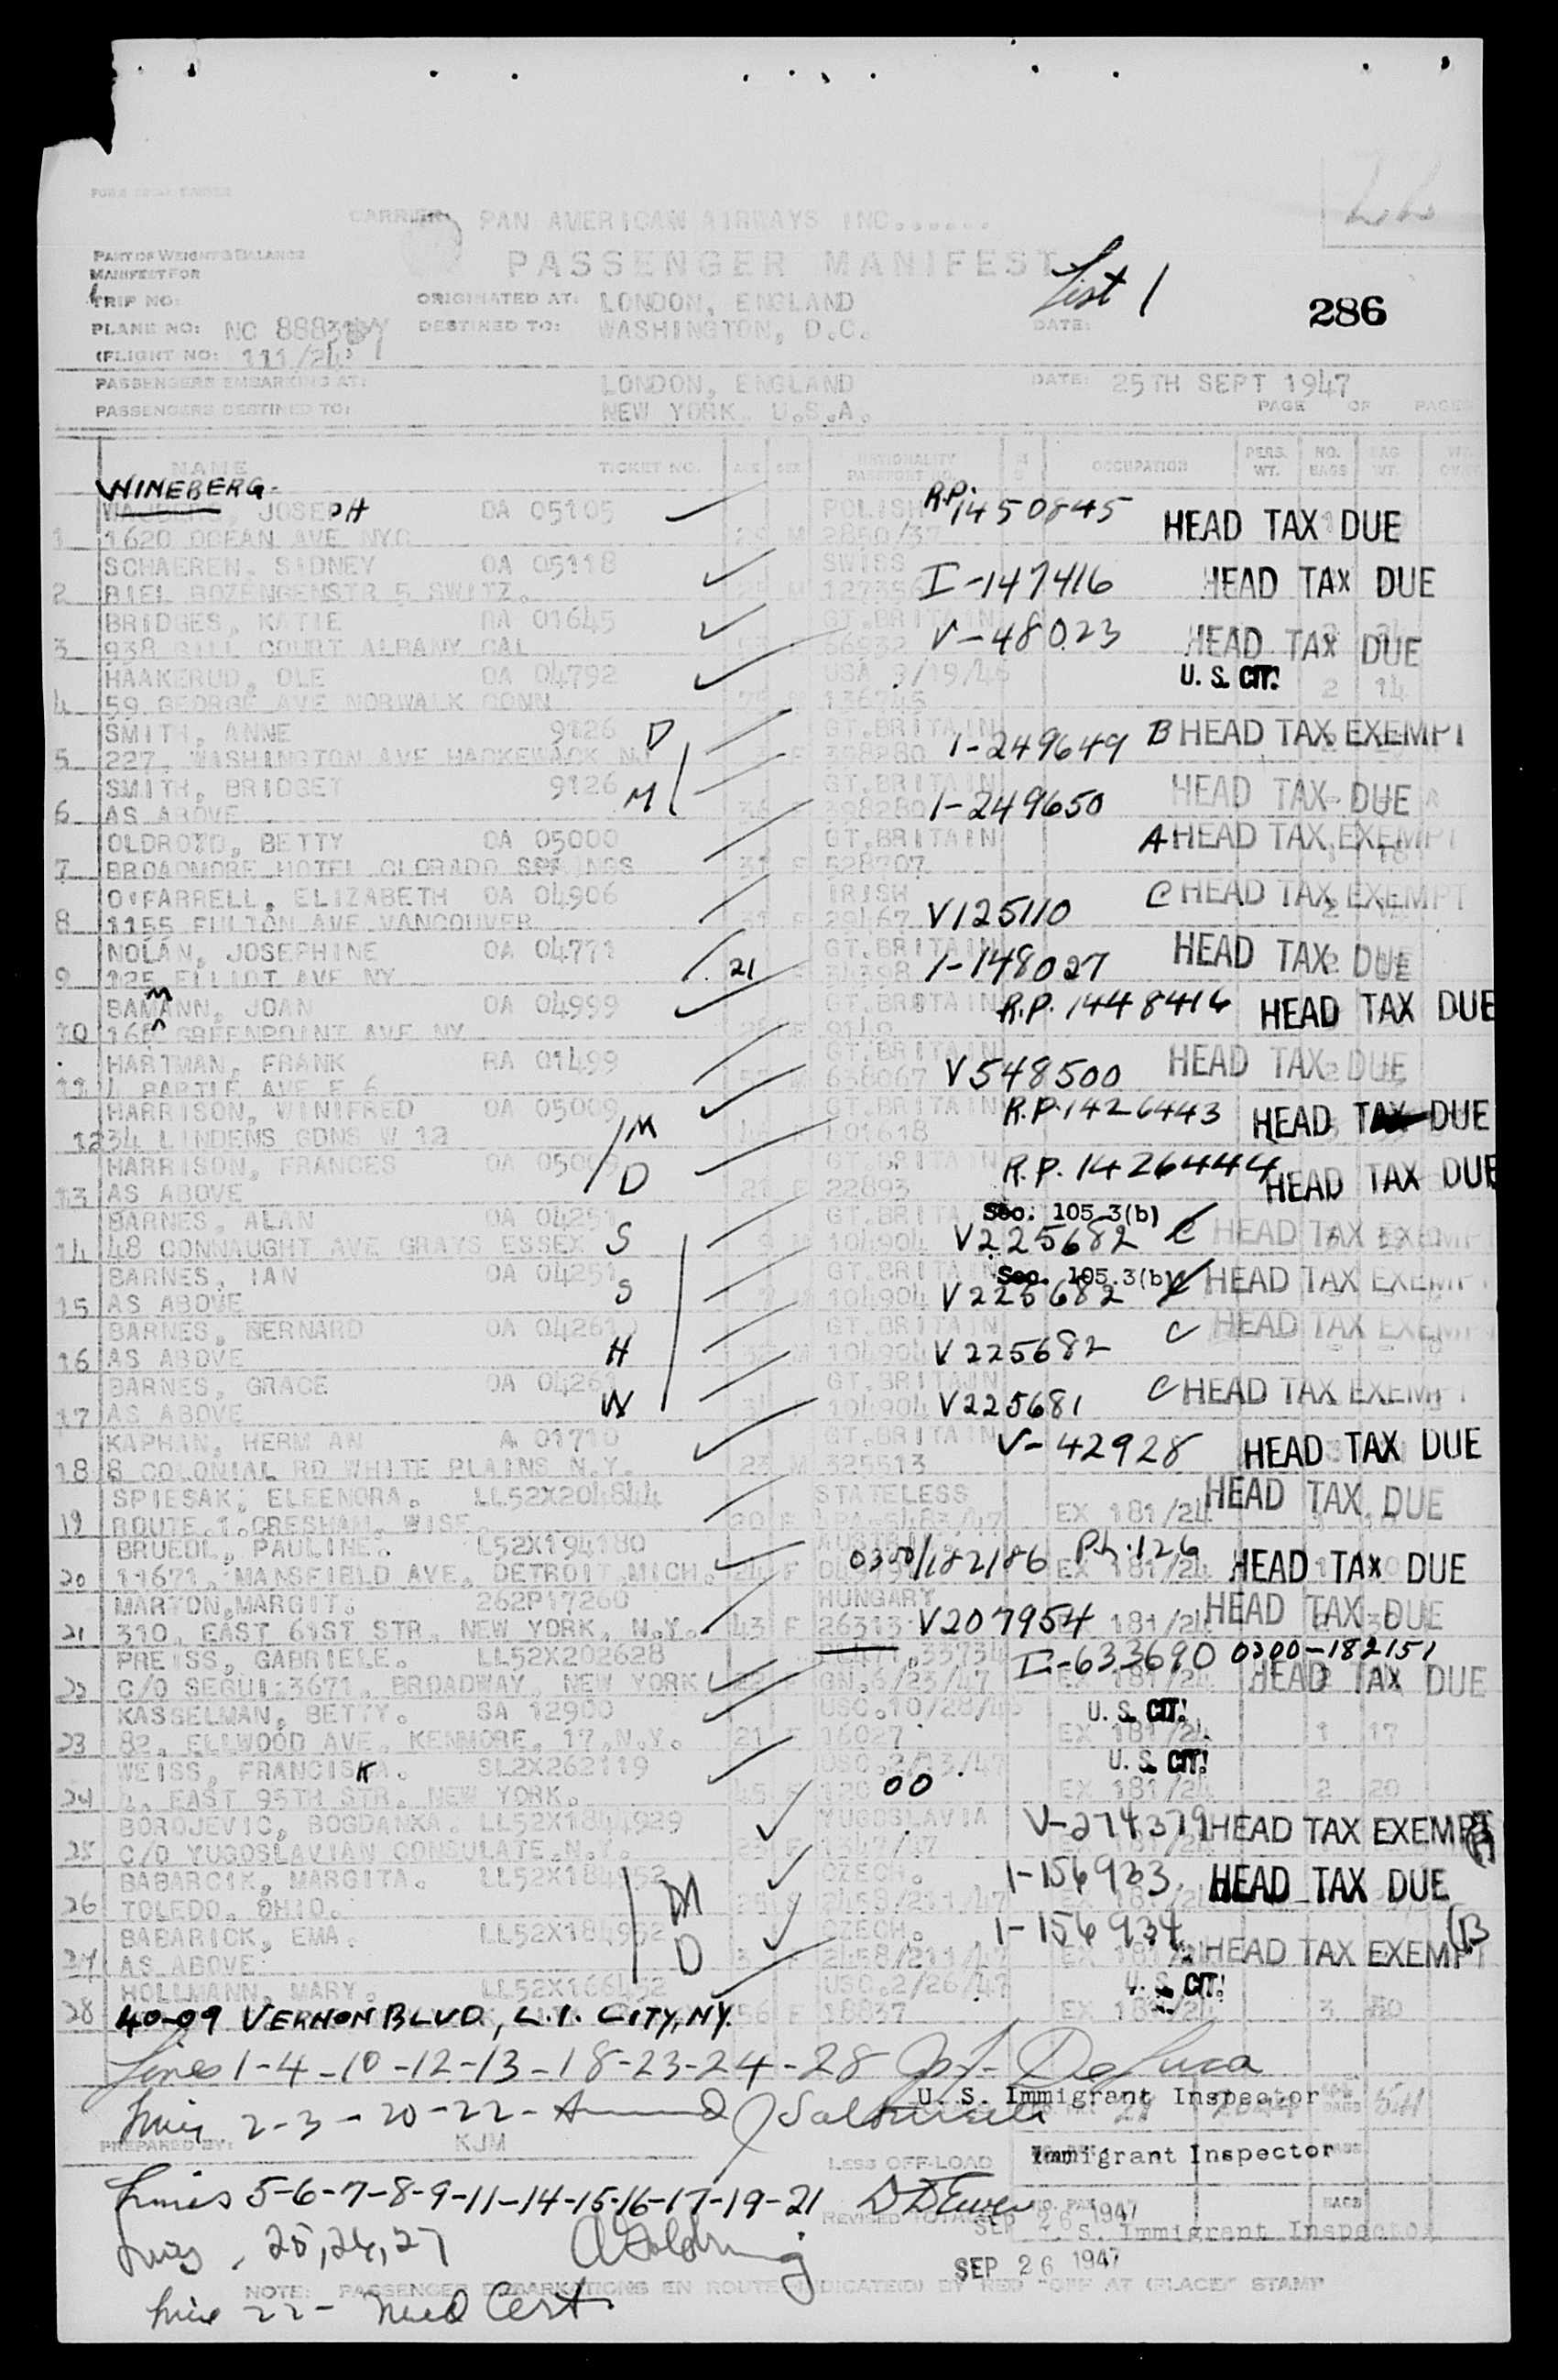 22
CARRIER PAN AMERICAN AIRWAYS INC......
PASSENGER MANIFEST
PART OF WEIGHT & BALANCE
MANIFEST FOR
List 1
286
TRIP NO:
ORIGINATED AT: LONDON, ENGLAND
PLANE NO: NC 888
DESTINED TO: WASHINGTON, D.C.
DATE:
(FLIGHT NO: 111/24)
PASSENGERS EMBARKING AT: LONDON, ENGLAND DATE: 25TH SEPT 1947
PASSENGERS DESTINED TO: NEW YORK. U.S.A. PAGE OF PAGES
NAME TICKET NO. AGE SEX NATIONALITY PASSPORT NO. OCCUPATION PERS. WT. NO. BAGS BAG WT.
WINEBERG-
JOSEPH OA 05105 POLISH R.P. 1450845 HEAD TAX DUE
1 1620 OCEAN AVE NYC 29 M 2850/37
SCHAEREN, SIDNEY OA 05118 SWISS I-147416 HEAD TAX DUE
2 BIEL BOZENGENSTR 5 SWITZ. M
BRIDGES, KATIE RA 01645 GT.BRITAIN V-48023 HEAD TAX DUE
3 938 GILL COURT ALBANY CAL 66932
HAAKERUD, OLE OA 04792 USA 3/19/46 U. S. CIT!
4 59 GEORGE AVE NORWALK CONN 136745 2 14
SMITH, ANNE 9126 D GT.BRITAIN 1-249649 B HEAD TAX EXEMPT
5 227, WASHINGTON AVE HACKEWACK NJ F
SMITH, BRIDGET 9126 M GT.BRITAIN 1-249650 HEAD TAX DUE
6 AS ABOVE 36
OLDROYD, BETTY OA 05000 GT.BRITAIN A HEAD TAX EXEMPT
7 BROADMORE HOTEL CLORADO SPRINGS 31 F 528707
O'FARRELL, ELIZABETH OA 04906 IRISH V125110 C HEAD TAX EXEMPT
8 1155 FULTON AVE VANCOUVER 31 F 29467
NOLAN, JOSEPHINE OA 04771 GT.BRITAIN 1-148027 HEAD TAX DUE
9 125 ELLIOT AVE NY 21 F 34398
M
BAMANN, JOAN OA 04999 GT.BRITAIN R.P. 1448416 HEAD TAX DUE
10 GREENPOINT AVE NY
HARTMAN, FRANK RA 01499 GT.BRITAIN V548500 HEAD TAX DUE
11 BARTLE AVE E 6 57 M 638067
HARRISON, WINIFRED OA 05009 M GT.BRITAIN R.P. 1426443 HEAD TAX DUE
12 34 LINDENS GDNS W 12 L01618
HARRISON, FRANCES D GT.BRITAIN R.P. 1426444 HEAD TAX DUE
13 AS ABOVE 21 F 22893
BARNES, ALAN OA 04251 GT.BRITAIN Sec. 105.3(b)
14 48 CONNAUGHT AVE GRAYS ESSEX S M 104904 V225682 C HEAD TAX EXEMPT
BARNES, IAN OA 04251 S GT.BRITAIN Sec. 105.3(b) HEAD TAX EXEMPT
15 AS ABOVE 104904 V225682
BARNES, BERNARD GT.BRITAIN C HEAD TAX EXEMPT
16 AS ABOVE H M 104904 V225682
BARNES, GRACE OA 04261 GT.BRITAIN C HEAD TAX EXEMPT
17 AS ABOVE W 104904 V225681
KAPHAN, HERM AN A 01710 GT.BRITAIN V-42928 HEAD TAX DUE
18 8 COLONIAL RD WHITE PLAINS N.Y. 23 M 325513
SPIESAK, ELEENORA. LL52X204844 STATELESS HEAD TAX DUE
19 ROUTE.1.GRESHAM, WISE 20 F EX 181/24
BRUEDL, PAULINE. L52X194180 0300/182186 P.L.126 HEAD TAX DUE
20 11671, MANSFIELD AVE, DETROIT.MICH. 24 F EX 181/24
MARTON,MARGIT. 262P17260 HUNGARY HEAD TAX DUE
21 310, EAST 61ST STR, NEW YORK, N.Y. 43 F 26313 V207954 181/24
PREISS, GABRIELE. LL52X202628 I-633690 0300-182151
22 C/O SEGUI:3671, BROADWAY, NEW YORK GN.6/23/47 HEAD TAX DUE
KASSELMAN, BETTY. SA 12900 USC.10/28/46 U. S. CIT!
23 82, ELLWOOD AVE, KENMORE, 17,N.Y. 21 F 16027 EX 181/24 1 17
WEISS, FRANCISKA. SL2X262119 U. S. CIT!
24 EAST 95TH STR, NEW YORK. 45 F 120 00 EX 181/24 2 20
BOROJEVIC, BOGDANKA. LL52X1844929 YUGOSLAVIA V-274379 HEAD TAX EXEMPT
25 C/O YUGOSLAVIAN CONSULATE.N.Y. 1347/47
BABARCIK, MARGITA. CZECH. 1-156933 HEAD TAX DUE
26 TOLEDO, OHIO. M
BABARICK, EMA. LL52X184952 CZECH. 1-156934 (B
27 AS ABOVE D HEAD TAX EXEMPT
HOLLMANN, MARY. USC.2/26/47 U. S. CIT!
28 40-09 VERNON BLVD, L.I. CITY, NY. 56 F 18837 EX 181/24 3
Lines 1-4-10-12-13-18-23-24-28 DeLuca
U. S. Immigrant Inspector
Lines 2-3-20-22-
PREPARED BY: KJM
LESS OFF-LOAD Immigrant Inspector
Lines 5-6-7-8-9-11-14-15-16-17-19-21
REVISED TOTALS SEP 26 1947
U. S. Immigrant Inspector
Lines, 25,26,27
SEP 26 1947
NOTE: PASSENGER DEBARKATIONS EN ROUTE INDICATE(D) BY RED "OFF AT (PLACE)" STAMP
Line 22- Need Cert.